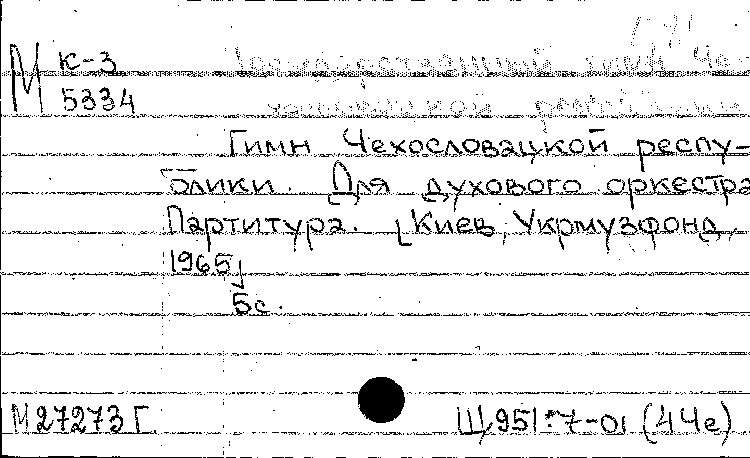 М К-3
5334
Государственный гимн Че-
республики
Гимн Чехословацкой респу-
блики. Для духового оркестра
Партитура. [Киев, Укрмузфонд,
1965]
5с.
М27273Г Щ951*7-01(44е)